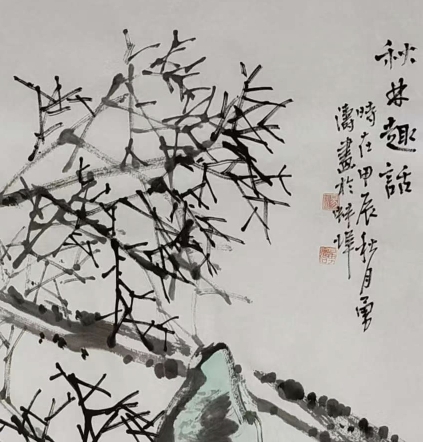 秋林趣話
時在甲辰秋月勇
濤畫於蚌埠